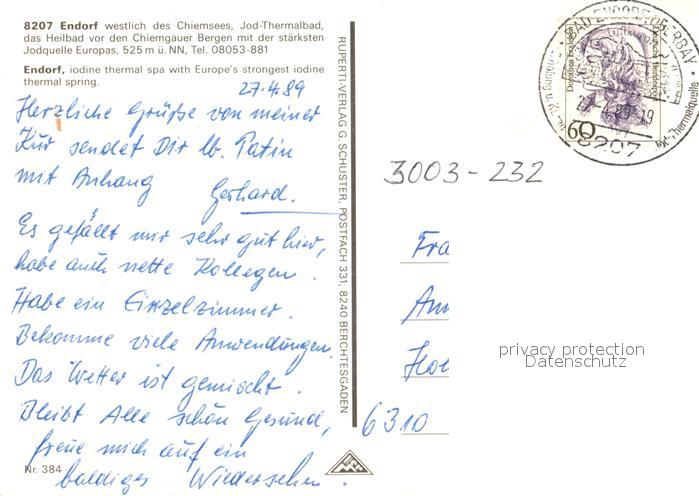 8207 Endorf westlich des Chiemsees, Jod-Thermalbad,
das Heilbad vor den Chiemgauer Bergen mit der stärksten
Jodquelle Europas, 525 m ü. NN, Tel. 08053-881
Endorf, iodine thermal spa with Europe's strongest iodine
thermal spring.
27.4.89
Herzliche Grüße von meiner
Kur sendet Dir lb. Patin
mit Anhang Gerhard.
Es gefällt mir sehr gut hier,
habe auch nette Kollegen.
Habe ein Einzelzimmer.
Bekomme viele Anwendungen.
Das Wetter ist gemischt.
Bleibt Alle schön Gesund,
freue mich auf ein
baldiges Wiedersehn.
Nr. 384
RUPERTI-VERLAG G. SCHUSTER, POSTFACH 331, 8240 BERCHTESGADEN
60
8207
3003-232
Fra
Am
Hol
6310
privacy protection
Datenschutz